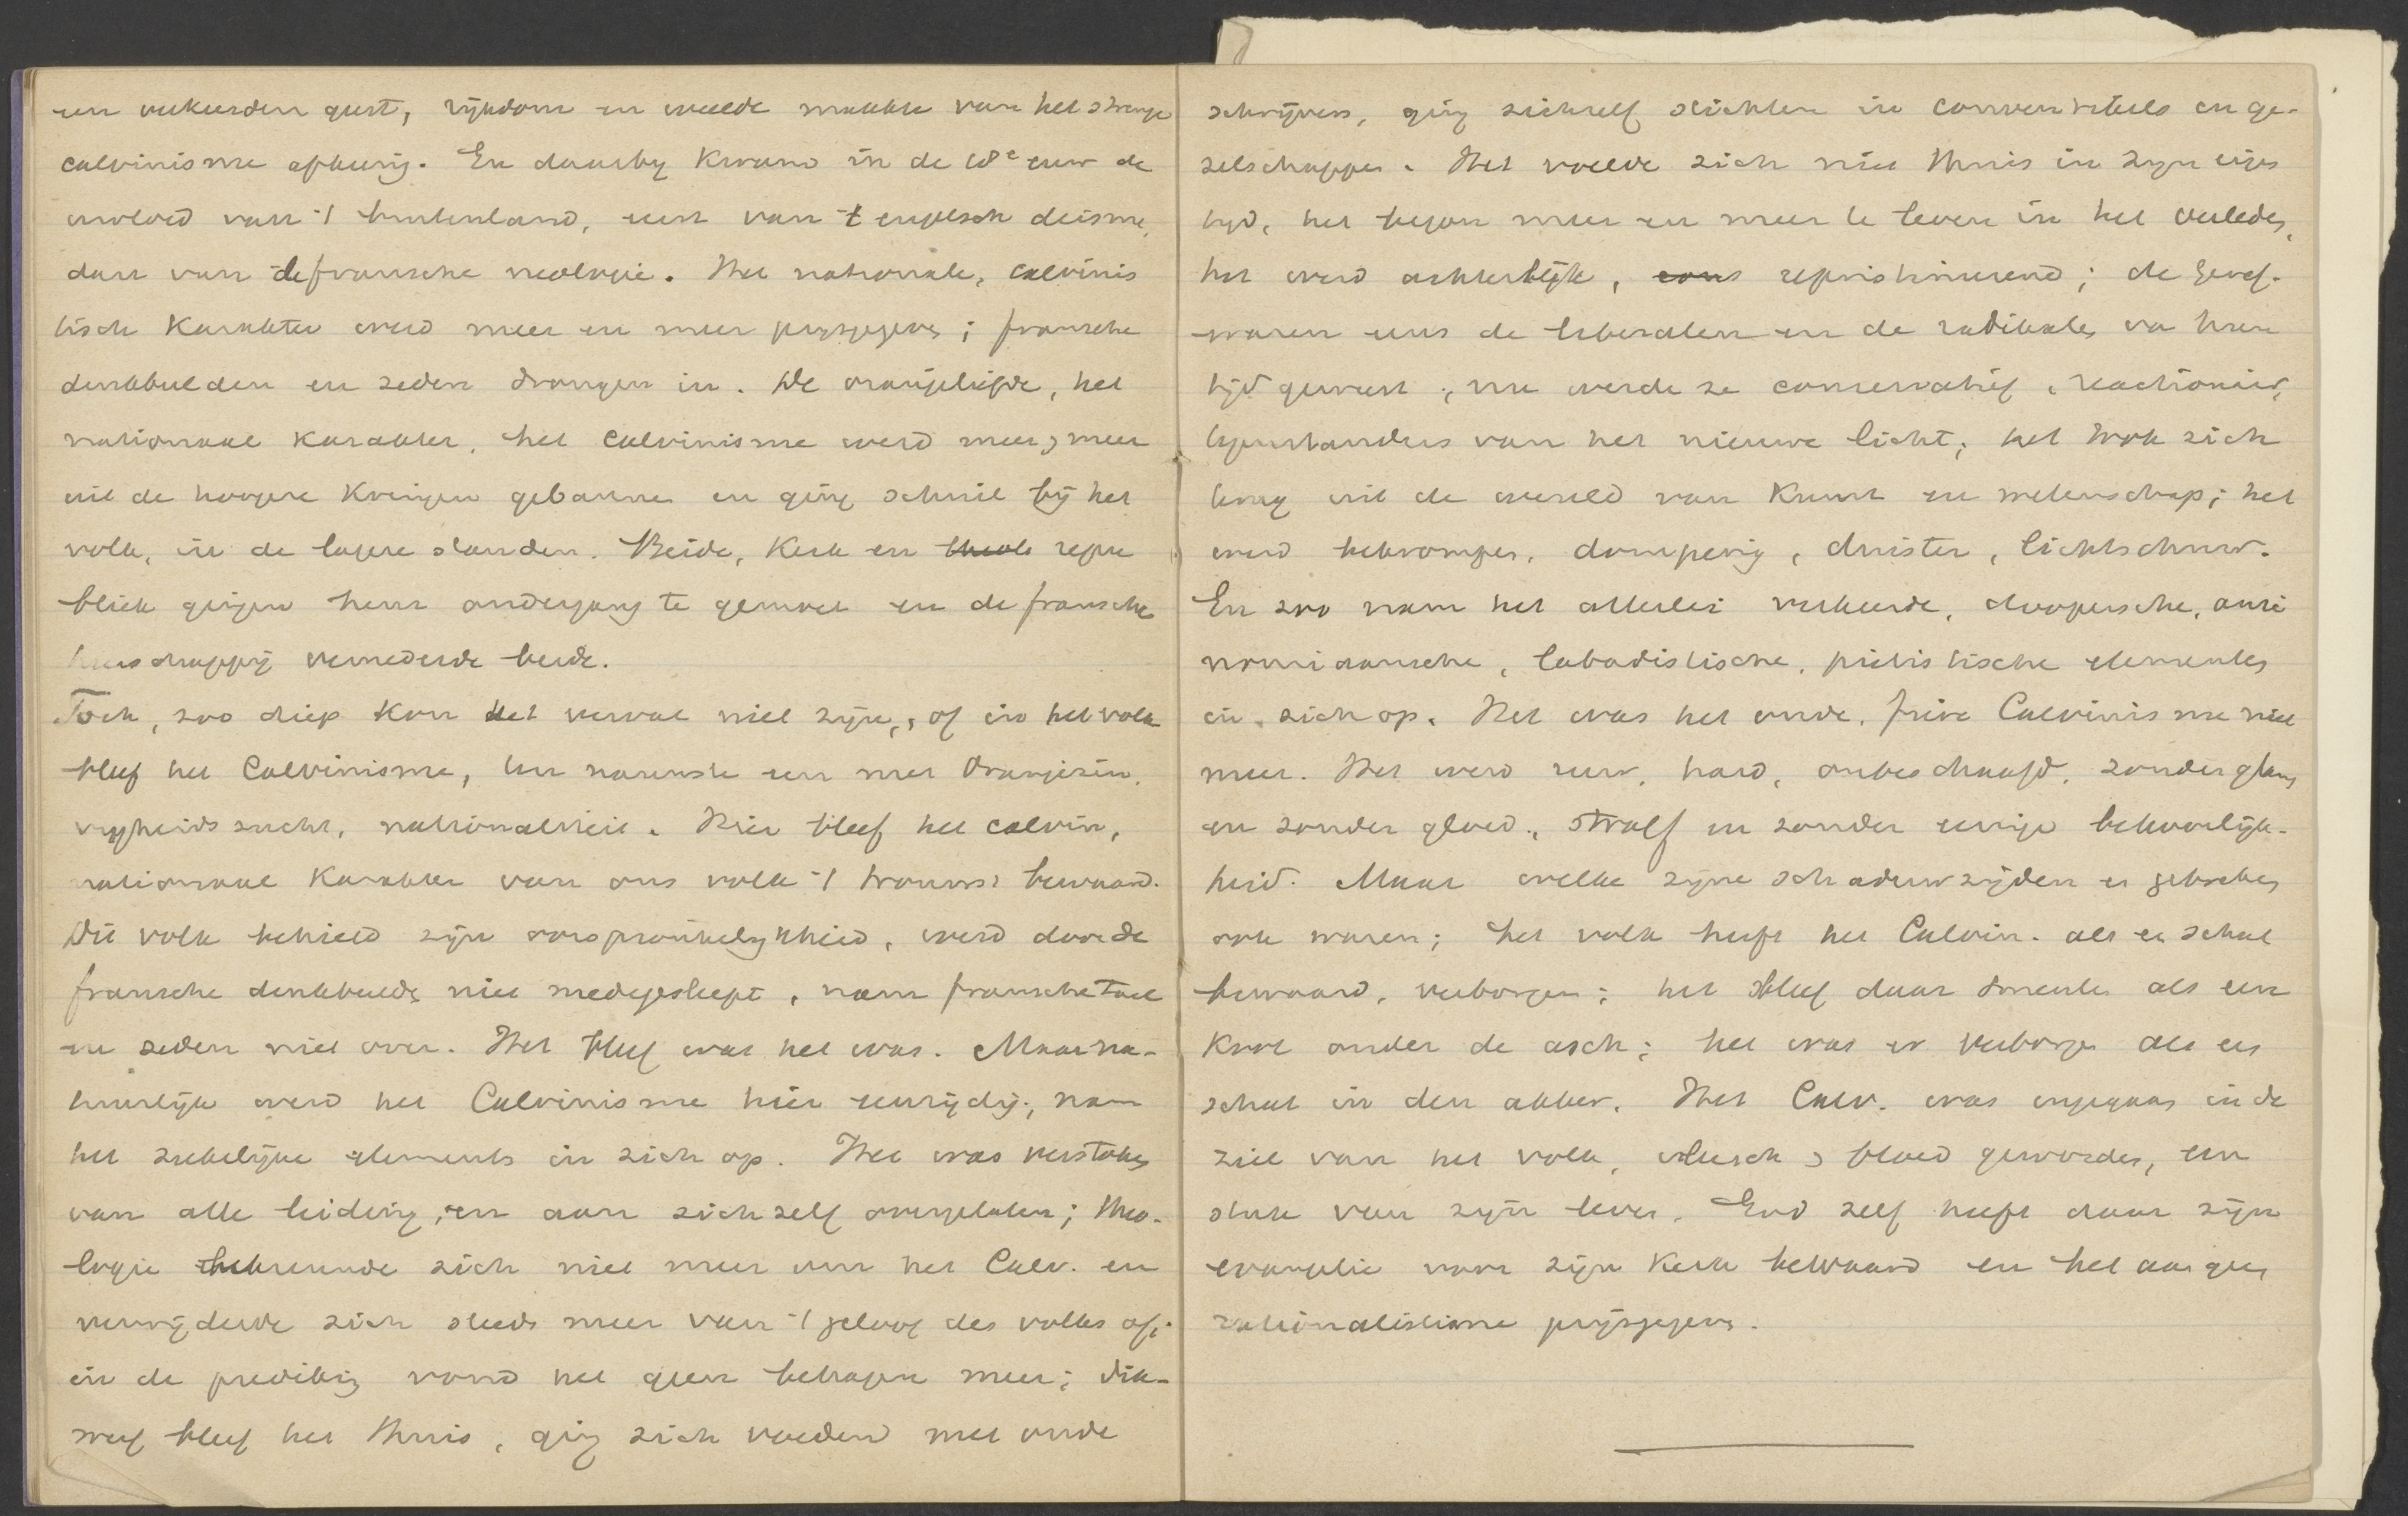 een verkeerden geest, rijkdom en weelde maakte van het strenge
calvinisme afkeerig. En daarbij kwam in de 18e eeuw de
invloed van 't buitenland, eerst van 't engelsch deisme,
dan van de fransche neologie. Het nationale, calvinis
tisch karakter werd meer en meer prijsgegeven; fransche
denkbeelden en zeden drongen in. De oranjeliefde, het
nationaal karakter, het calvinisme werd meer en meer
uit de hoogere kringen gebannen en ging schuil bij het
volk, in de lagere standen. Beide, Kerk en repu
bliek gingen hun ondergang te gemoet en de fransche
heerschappij vernederde beide.
Toch, zoo diep kon het verval niet zijn, of in het volk
bleef het Calvinisme, ten nauwste een met Oranjezin,
vrijheidszucht, nationaliteit. Hier bleef het calvin,
nationaal karakter van ons volk 't trouwst bewaard.
Dit volk behield zijn oorspronkelijkheid, werd door de
fransche denkbeelden niet medegesleept, nam fransche taal
en zeden niet over. Het bleef wat het was. Maar na-
tuurlijk werd het Calvinisme hier eenzijdig, nam
het ziekelijke elementen in zich op. Het was verstoken
van alle leiding, en aan zichzelf overgelaten; theo-
logie bekreunde zich niet meer om het Calv. en
verwijderde zich steeds meer van 't geloof des volks af;
in de prediking vond het geen behagen meer; dik-
werf bleef het thuis, ging zich voeden met oude
schrijvers, ging zichzelf stichten in conventikels en ge-
zelschappen. Het voelde zich niet thuis in zijn eigen
tijd, het begon meer en meer te leven in het verleden,
het werd achterlijk, cons repristineerend; de Geref.
waren eens de liberalen en de radikalen van hun
tijd geweest, nu werden ze conservatief, reactionair,
tegenstanders van het nieuwe licht; het trok zich
terug uit de wereld van kunst en wetenschap; het
werd bekrompen, domperig, duister, lichtschuw.
En zoo nam het allerlei verkeerde, doopersche, anti
nomiaansche, labadistische, pietistische elementen
in zich op. Het was het oude, fiere Calvinisme niet
meer. Het werd ruw, hard, onbeschaafd, zonder glans
en zonder gloed, straf en zonder eenige bekoorlijk-
heid. Maar welke zijne schaduwzijden en gebreken
ook waren; het volk heeft het Calvin. als een schat
bewaard, verborgen; het bleef daar smeulen als een
kool onder de asch; het was er verborgen als een
schat in den akker. Het Calv. was ingegaan in de
ziel van het volk, vleesch en bloed geworden, een
stuk van zijn leven. God zelf heeft daar zijn
evangelie voor zijn Kerk bewaard en het aan geen
rationalisme prijsgegeven.